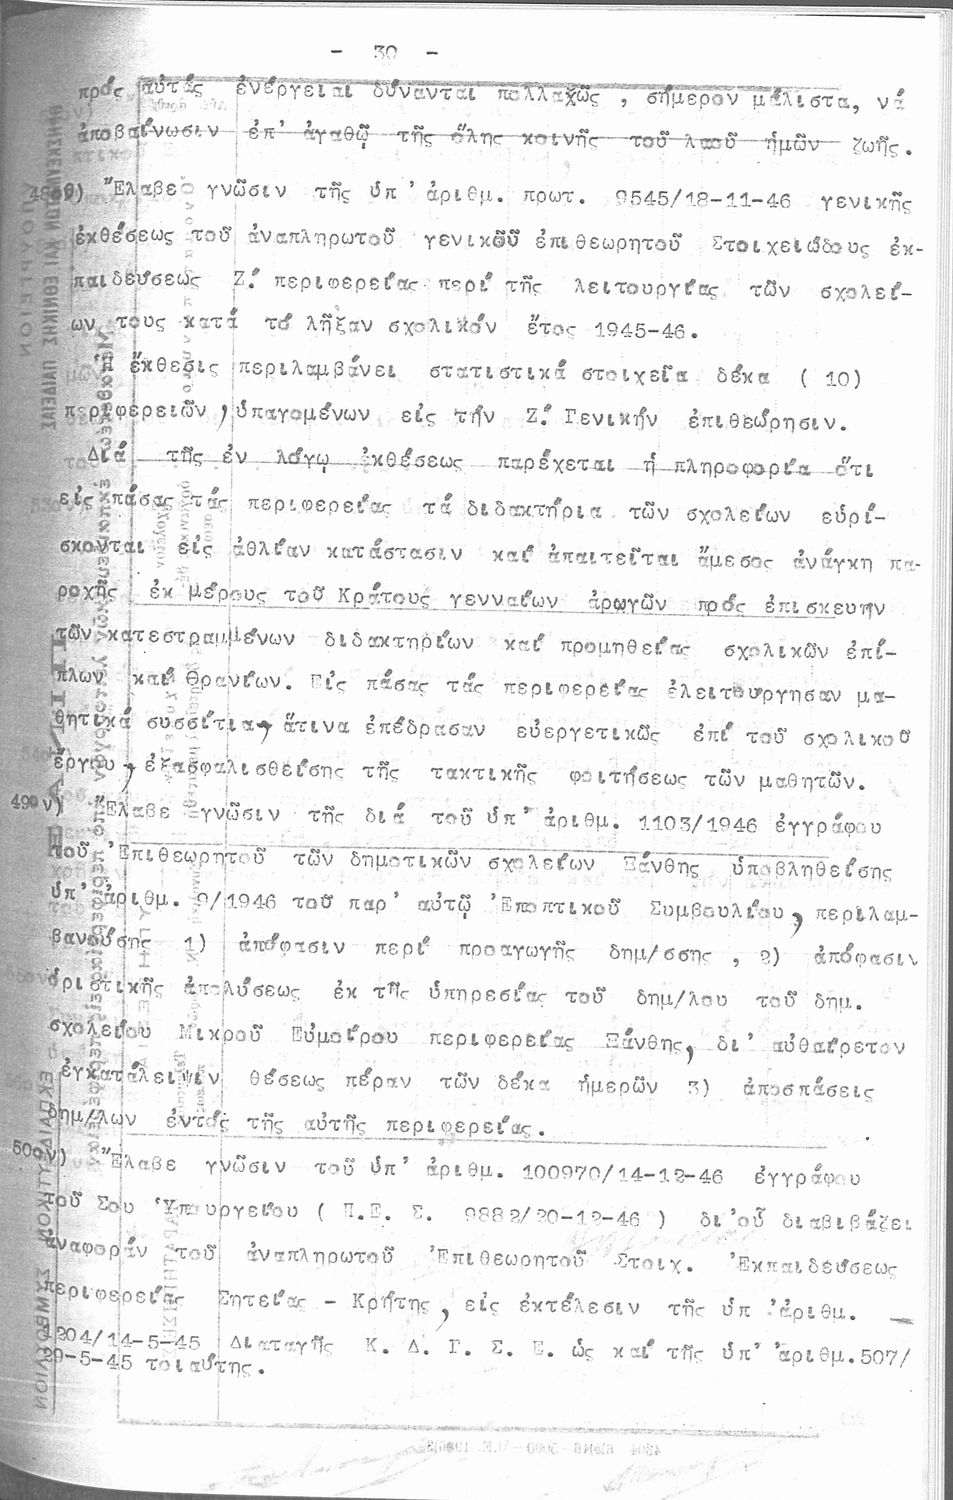 - 30 -
πρός αὐτάς ἐνέργειαι δύνανται πολλαχῶς , σήμερον μάλιστα, νά
ἀποβαίνωσιν ἐπ' ἀγαθῷ τῆς ὅλης κοινῆς τοῦ λαοῦ ἡμῶν ζωῆς.
Ἔλαβε γνῶσιν τῆς ὑπ' ἀριθμ. πρωτ. 9545/18-11-46 γενικῆς
ἐκθέσεως τοῦ ἀναπληρωτοῦ γενικοῦ ἐπιθεωρητοῦ Στοιχειώδους ἐκ-
παιδεύσεως Ζ! περιφερείας περί τῆς λειτουργίας τῶν σχολεί-
ων τους κατά τό λῆξαν σχολικόν ἔτος 1945-46.
Ἡ ἔκθεσις περιλαμβάνει στατιστικά στοιχεῖα δέκα ( 10)
περιφερειῶν , ὑπαγομένων εἰς τήν Ζ! Γενικήν ἐπιθεώρησιν.
Διά τῆς ἐν λόγῳ ἐκθέσεως παρέχεται ἡ πληροφορία ὅτι
εἰς πάσας τάς περιφερείας τά διδακτήρια τῶν σχολείων εὑρί-
σκονται εἰς ἀθλίαν κατάστασιν καί ἀπαιτεῖται ἄμεσος ἀνάγκη πα-
ροχῆς ἐκ μέρους τοῦ Κράτους γενναίων ἀρωγῶν πρός ἐπισκευήν
τῶν κατεστραμμένων διδακτηρίων καί προμηθείας σχολικῶν ἐπί-
πλων καί θρανίων. Εἰς πάσας τάς περιφερείας ἐλειτούργησαν μα-
θητικά συσσίτια, ἅτινα ἐπέδρασαν εὐεργετικῶς ἐπί τοῦ σχολικοῦ
ἔργου , ἐξασφαλισθείσης τῆς τακτικῆς φοιτήσεως τῶν μαθητῶν.
49ον) Ἔλαβε γνῶσιν τῆς διά τοῦ ὑπ' ἀριθμ. 1103/1946 ἐγγράφου
τοῦ Ἐπιθεωρητοῦ τῶν δημοτικῶν σχολείων Ξάνθης ὑποβληθείσης
ὑπ' ἀριθμ. 9/1946 τοῦ παρ' αὐτῷ Ἐποπτικοῦ Συμβουλίου, περιλαμ-
βανούσης 1) ἀπόφασιν περί προαγωγῆς δημ/σσης , 2) ἀπόφασιν
ὁριστικῆς ἀπολύσεως ἐκ τῆς ὑπηρεσίας τοῦ δημ/λου τοῦ δημ.
σχολείου Μικροῦ Εὐμοίρου περιφερείας Ξάνθης, δι' αὐθαίρετον
ἐγκατάλειψιν θέσεως πέραν τῶν δέκα ἡμερῶν 3) ἀποσπάσεις
δημ/λων ἐντός τῆς αὐτῆς περιφερείας.
50ον) Ἔλαβε γνῶσιν τοῦ ὑπ' ἀριθμ. 100970/14-12-46 ἐγγράφου
τοῦ Σου Ὑπουργείου ( Π.Ε. Σ. 9882/20-12-46 ) δι'οὗ διαβιβάζει
ἀναφοράν τοῦ ἀναπληρωτοῦ Ἐπιθεωρητοῦ Στοιχ. Ἐκπαιδεύσεως
περιφερείας Σητείας - Κρήτης, εἰς ἐκτέλεσιν τῆς ὑπ 'ἀριθμ. -
1204/14-5-45 Διαταγῆς Κ. Δ. Γ. Σ. Ε. ὡς καί τῆς ὑπ' ἀριθμ.507/
29-5-45 τοιαύτης.